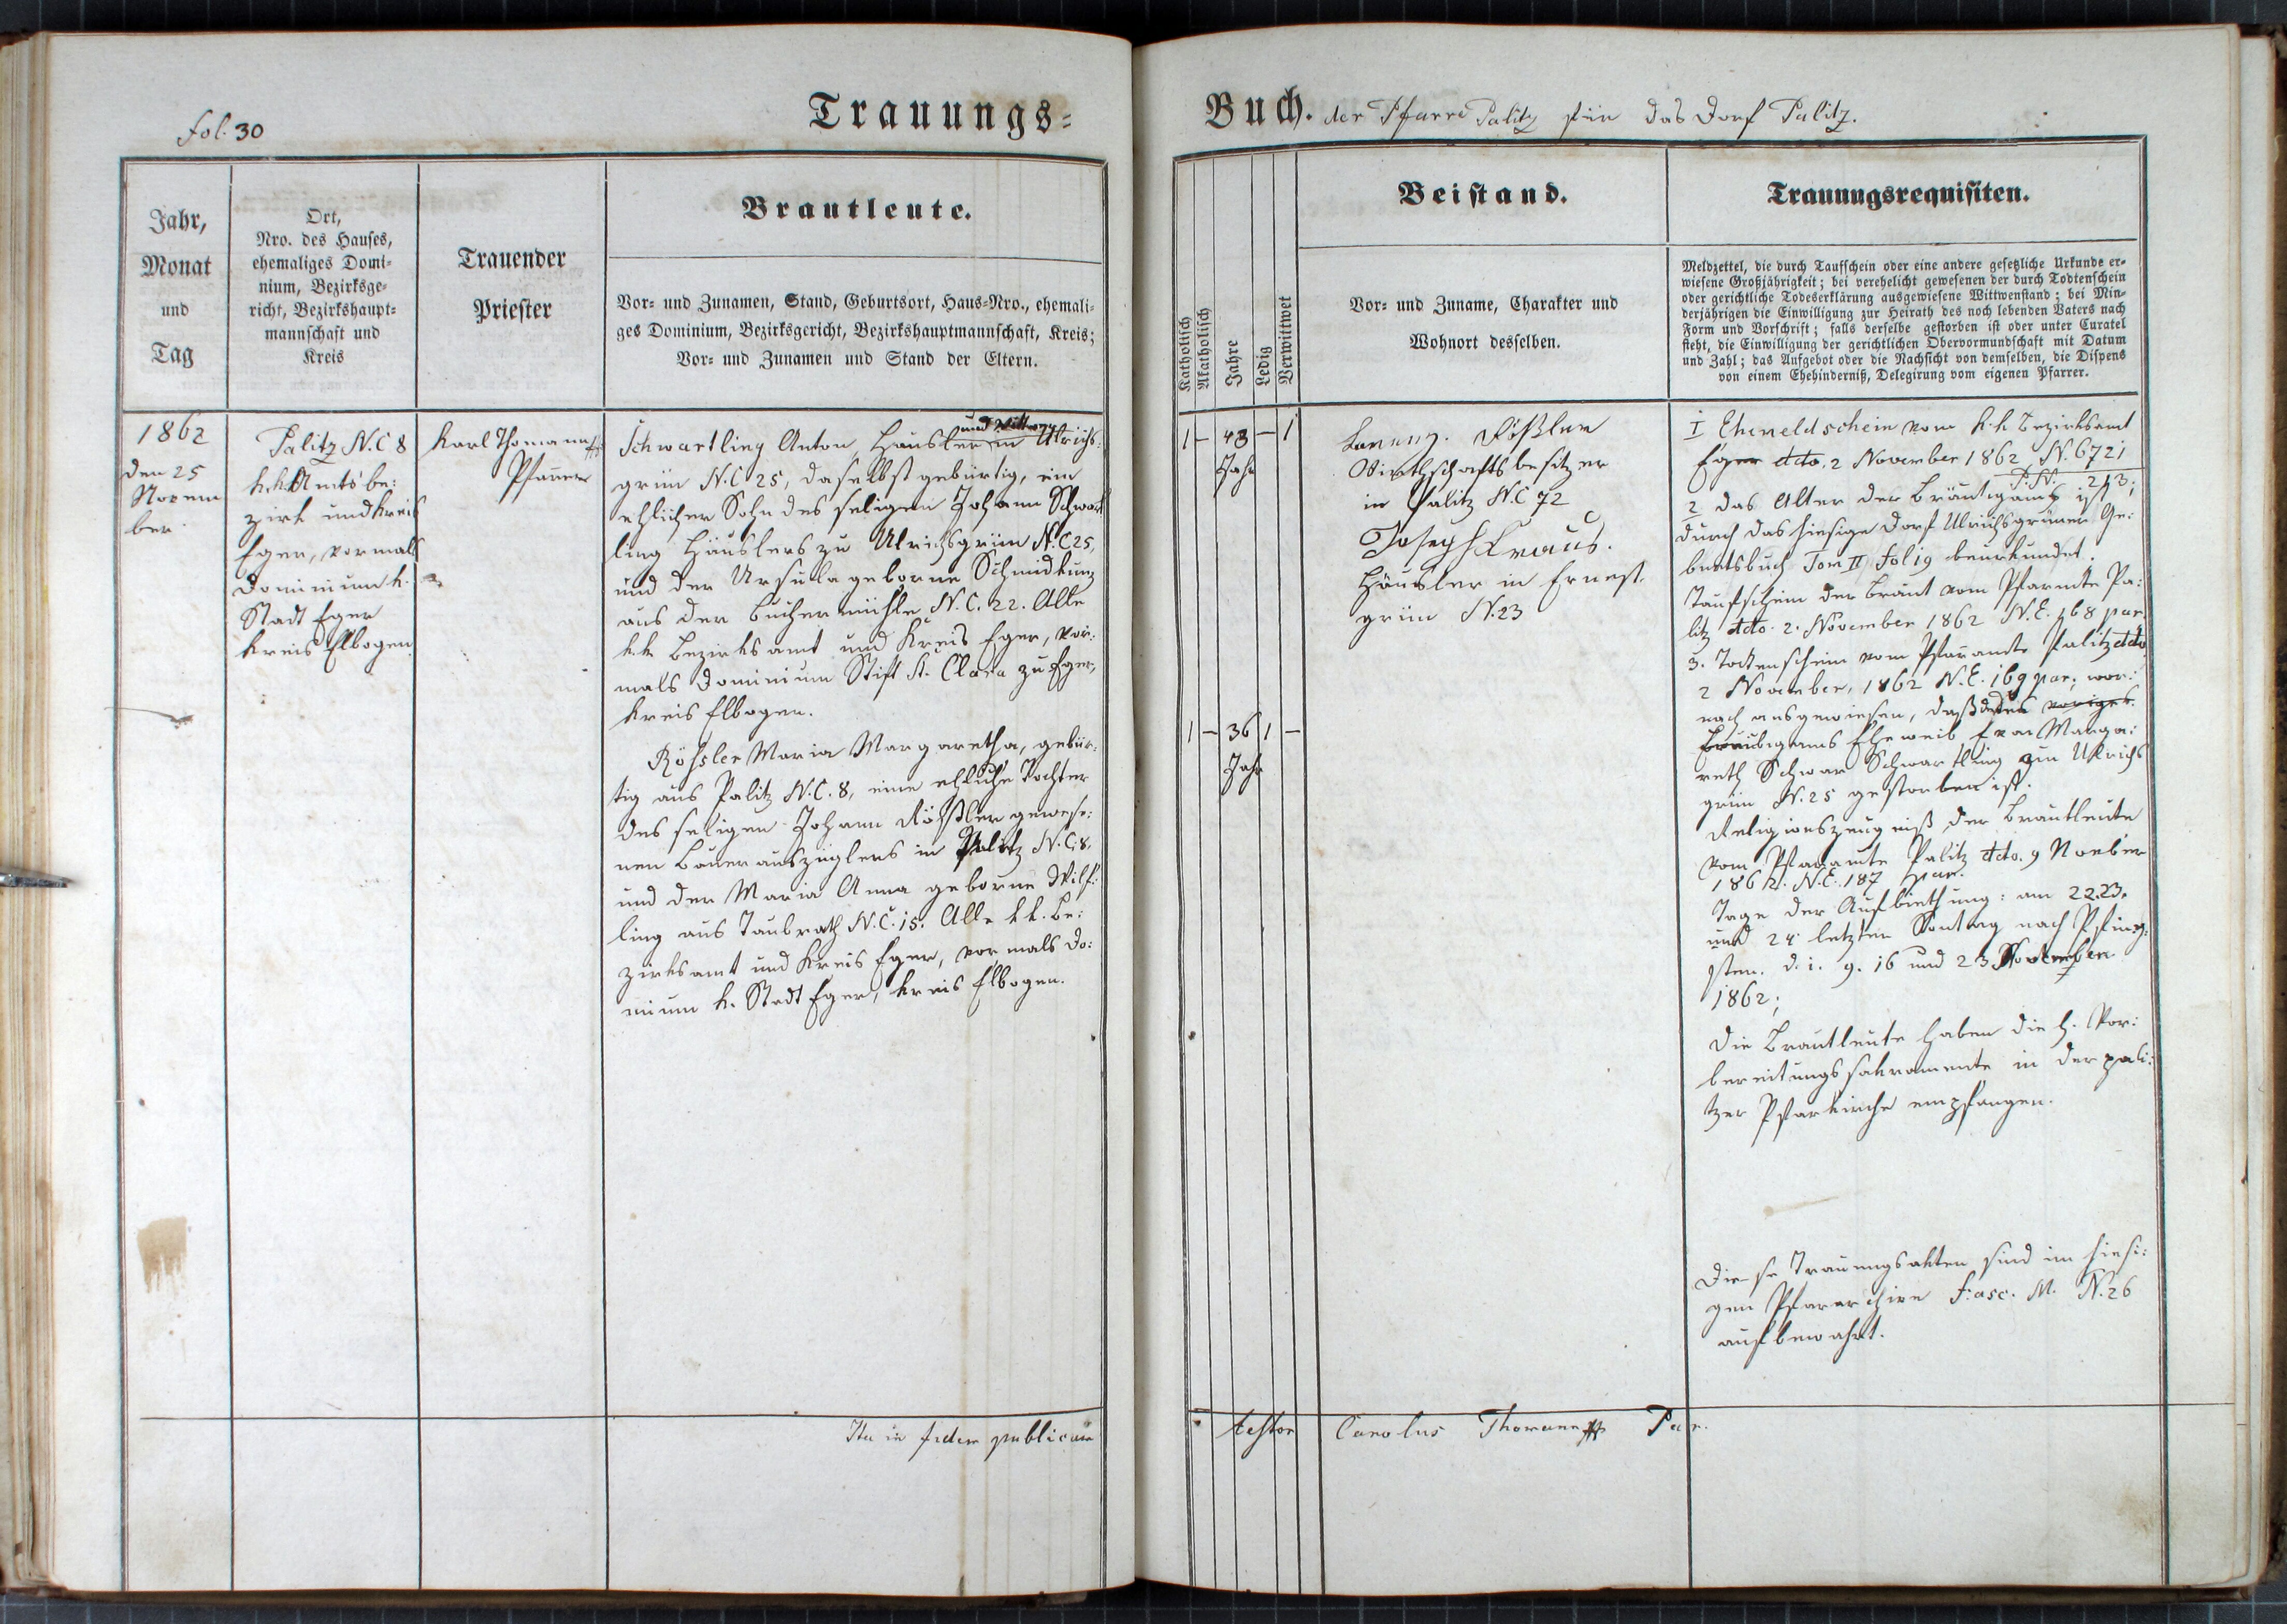 fol. 30
Trauungs=
Buch. der Pfarre Palitz für das Dorf Palitz.
Jahr,
Monat
und
Tag
Ort,
Nro. des Hauses,
ehemaliges Domi-
nium, Bezirksge-
richt, Bezirkshaupt-
mannschaft und
Kreis
Trauender
Priester
Brautleute.
Vor- und Zunamen, Stand, Geburtsort, Haus-Nro., ehemali-
ges Dominium, Bezirksgericht, Bezirkshauptmannschaft, Kreis;
Vor- und Zunamen und Stand der Eltern.
Katholisch
Akatholisch
Jahre
Ledig
Verwittwet
Beistand.
Vor- und Zuname, Charakter und
Wohnort desselben.
Trauungsrequisiten.
Meldzettel, die durch Taufschein oder eine andere gesetzliche Urkunde er-
wiesene Großjährigkeit; bei verehelicht gewesenen der durch Todtenschein
oder gerichtliche Todeserklärung ausgewiesene Wittwenstand; bei Min-
derjährigen die Einwilligung zur Heirath des noch lebenden Vaters nach
Form und Vorschrift; falls derselbe gestorben ist oder unter Curatel
steht, die Einwilligung der gerichtlichen Obervormundschaft mit Datum
und Zahl; das Aufgebot oder die Nachsicht von demselben, die Dispens
von einem Ehehinderniß, Delegirung vom eigenen Pfarrer.
1862
den 25
Novem
ber.
Palitz N.C 8
k.k. Amtsbe:
zirk und Kreis
Eger, vormals
Dominium k.
Stadt Eger
Kreis Elbogen
Karl Thomann
Pfarrer
und Wittwer
Schwartling Anton, Häusler in Ulrichs:
grün N.C 25, daselbst gebürtig, ein
ehlicher Sohn des seligen Johann Schwart
ling Häuslers zu Ulrichsgrün N.C 25,
und der Ursula geborne Schmidkunz
aus der Buchermühle N.C. 22. Alle
k.k. Bezirksamt und Kreis Eger, vor:
mals Dominium Stift St. Clara zu Eger,
Kreis Elbogen.
Rößler Maria Margaretha, gebür:
tig aus Palitz N.C. 8, eine ehliche Tochter
des seligen Johann Rößler gewese:
nen Bauerauszüglers in Palitz N.C. 8,
und der Maria Anna geborne Wilf:
ling aus Taubrath N.C. 15. Alle k.k. Be:
zirksamt und Kreis Eger, vormals Do:
minium k. Stadt Eger, Kreis Elbogen.
1 – 43 – 1
Jahr
1 – 36 1 –
Jahr
Lorenz Rößler
Wirthschaftsbesitzer
in Palitz N.C 72
Joseph Kraus.
Häusler in Ernest-
grün N. 23
I Ehemeldschein vom k.k Bezirksamt
Eger dcto. 2 November 1862, N. 6721
P.N. 213;
2 das Alter der Bräutigams ist
durch das hiesige Dorf Ulrichsgrüner Ge:
burtsbuch Tom II fol 19 beurkundet.
Taufschein der Braut vom Pfaramte Pa:
litz dcto. 2. November 1862 N.E. 168 par
3. Todtenschein vom Pfaramte Palitz dcto
2 November, 1862 N.E. 169 par; wor:
nach ausgewiesen, daß des voriges
Bräutigams Eheweib Eva Marga:
reth Schwar Schwartling zu Ulrichs
grün N. 25 gestorben ist.
Religionszeugniß der Brautleute
vom Pfaramte Palitz dcto. 9 November
1862. N.E. 187 par.
Tage der Aufbiethung: am 22. 23.
und 24 letzten Sontag nach Pfing:
sten. d. i. 9. 16 und 23 November
1862;
Die Brautleute haben die h. Vor:
bereitungssakramente in der pali:
tzer Pfarkirche empfangen.
Diese Trauungsakten sind im hiesi:
gen Pfararchive Fasc. M. N. 26
aufbewahrt.
Ita in fidem publicam
testor Carolus Thomann Par.